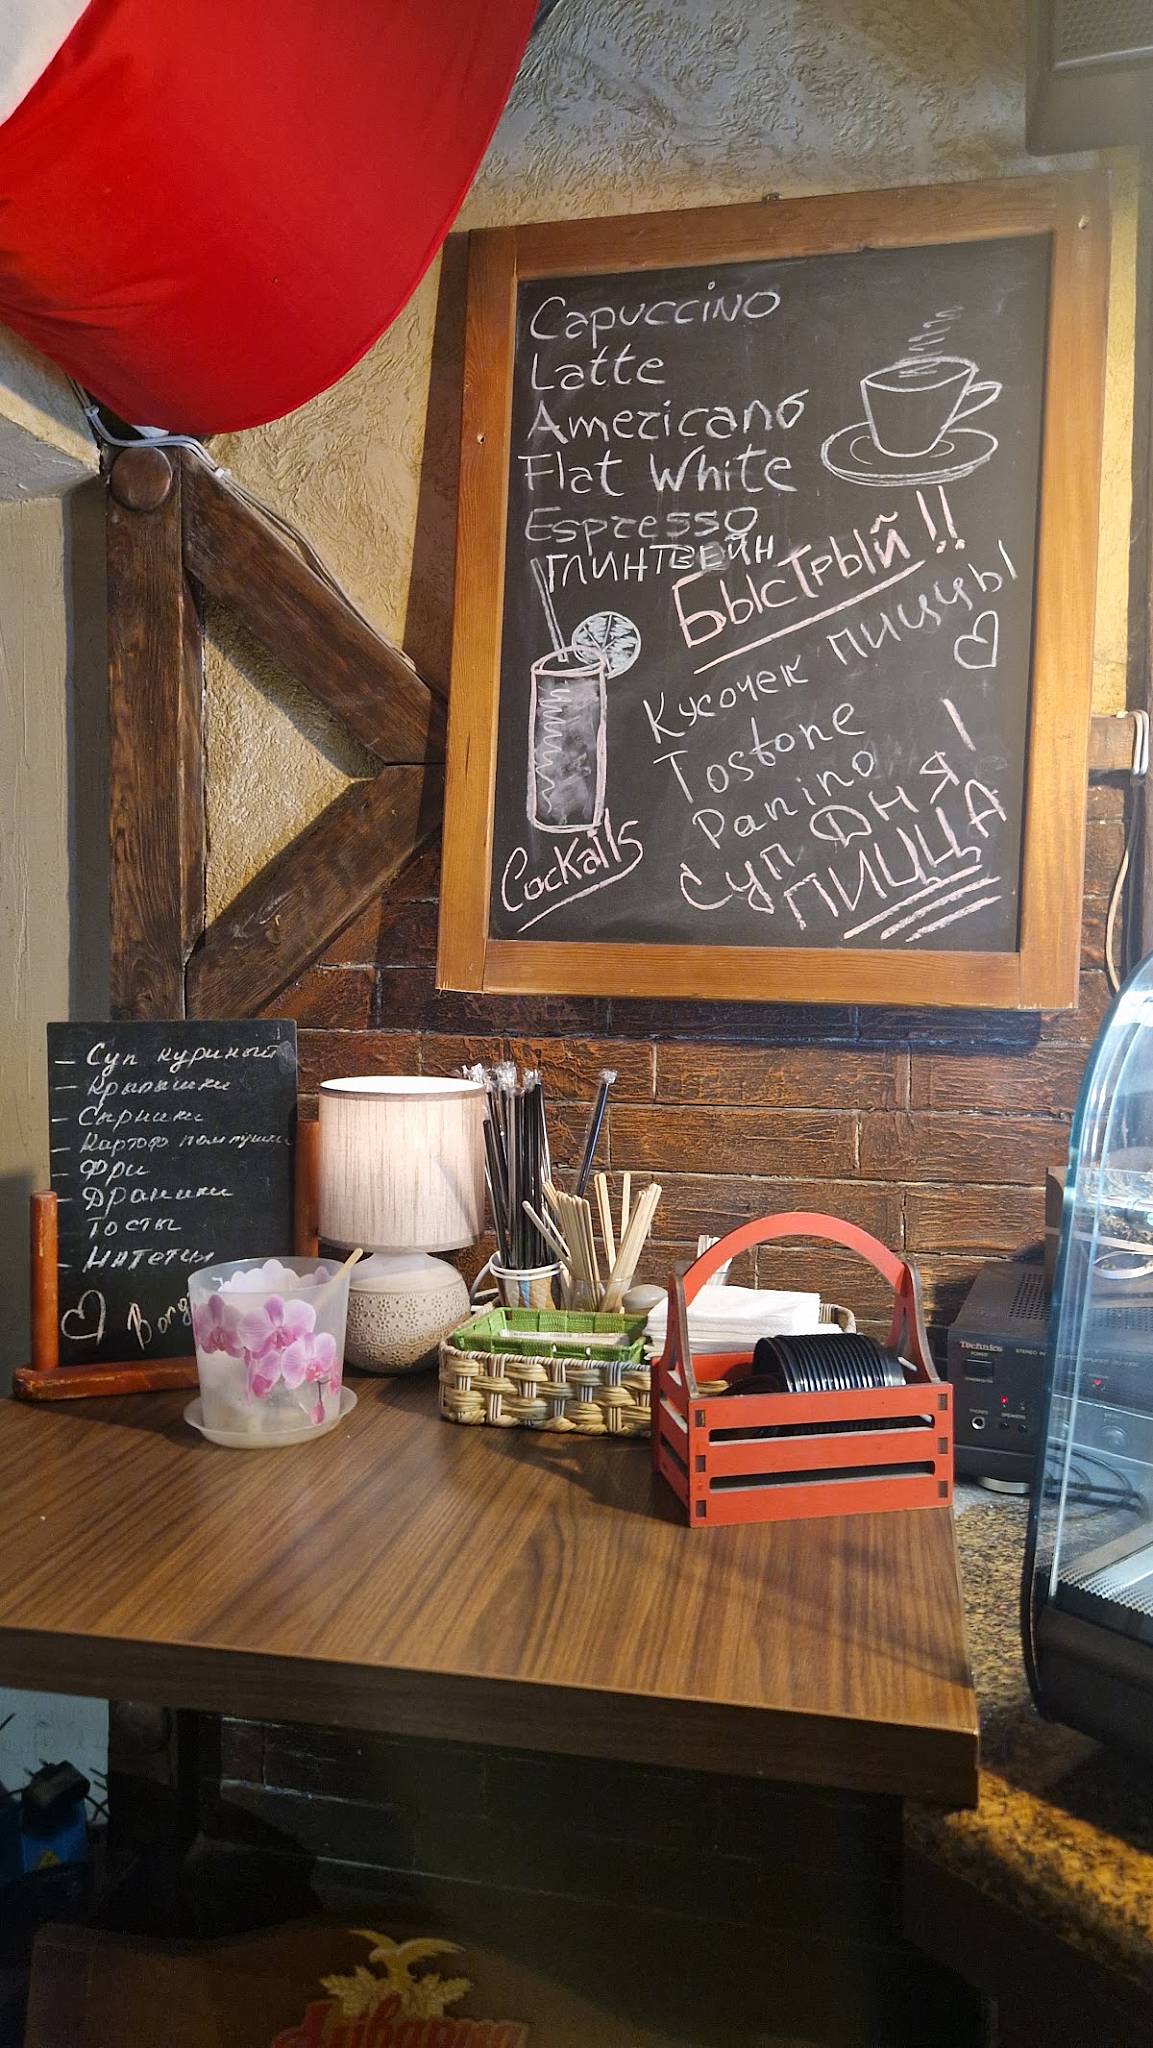 Capuccino
Latte
Americano
Flat White
Espresso
ГЛИНТВЕЙН
БЫСТРЫЙ!!
Кусочек пиццы
Tostone
Panino
Суп дня!
ПИЦЦА
Cockails
– Суп куриный
– Крылышки
– Сырники
– Картофо пампушки
– Фри
– Драники
– Тосты
– Нагетсы
Technics
Аліварыя